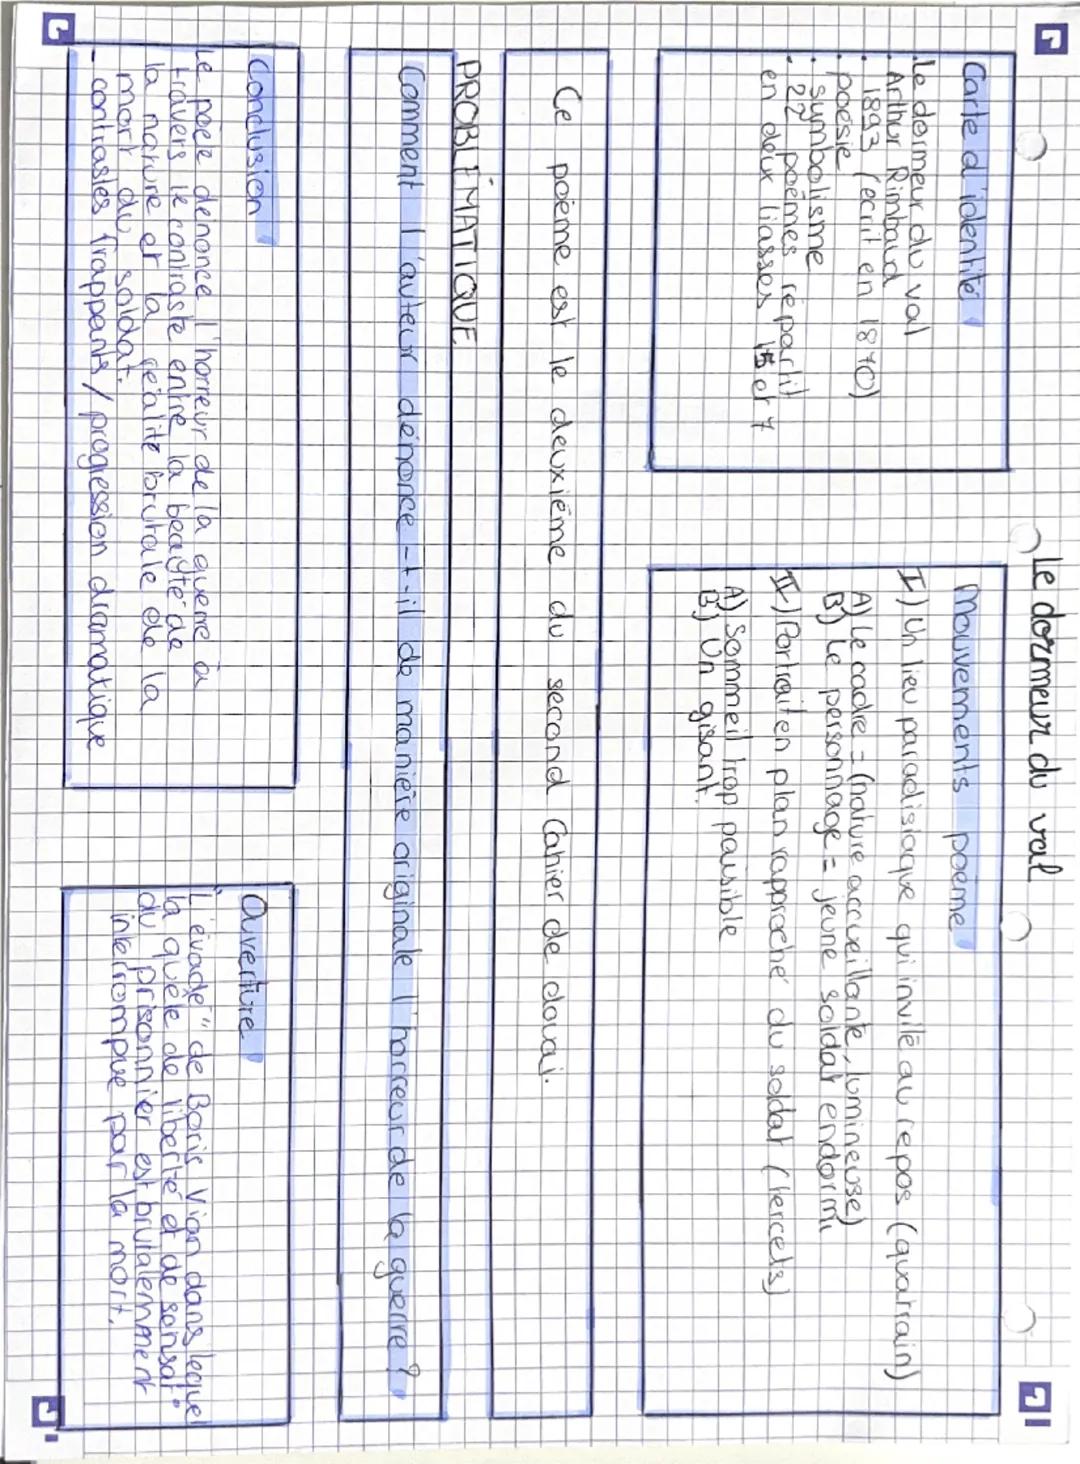 Le dormeur du val
Carte d'identité
. le dormeur du val
. Arthur Rimbaud
. 1893 (écrit en 1870)
. poésie
. symbolisme
. 22 poèmes répartit
en deux liasses 15 et 7
Mouvements poème
I) Un lieu paradisiaque qui invite au repos (quatrain)
A) Le cadre = (nature accueillante, lumineuse)
B) Le personnage = jeune soldat endormi
II) Portrait en plan rapproché du soldat (tercets)
A) Sommeil trop paisible
B) Un gisant.
Ce poème est le deuxième du second Cahier de douai.
PROBLÉMATIQUE
Comment l'auteur dénonce-t-il de manière originale l'horreur de la guerre ?
Conclusion
Le poète dénonce l'horreur de la guerre à
travers le contraste entre la beauté de
la nature et la réalité brutale de la
mort du soldat.
- contrastes frappants / progression dramatique
Ouverture
"L'évadé" de Boris Vian dans lequel
la quête de liberté et de
du prisonnier est brutalement
interrompue par la mort.